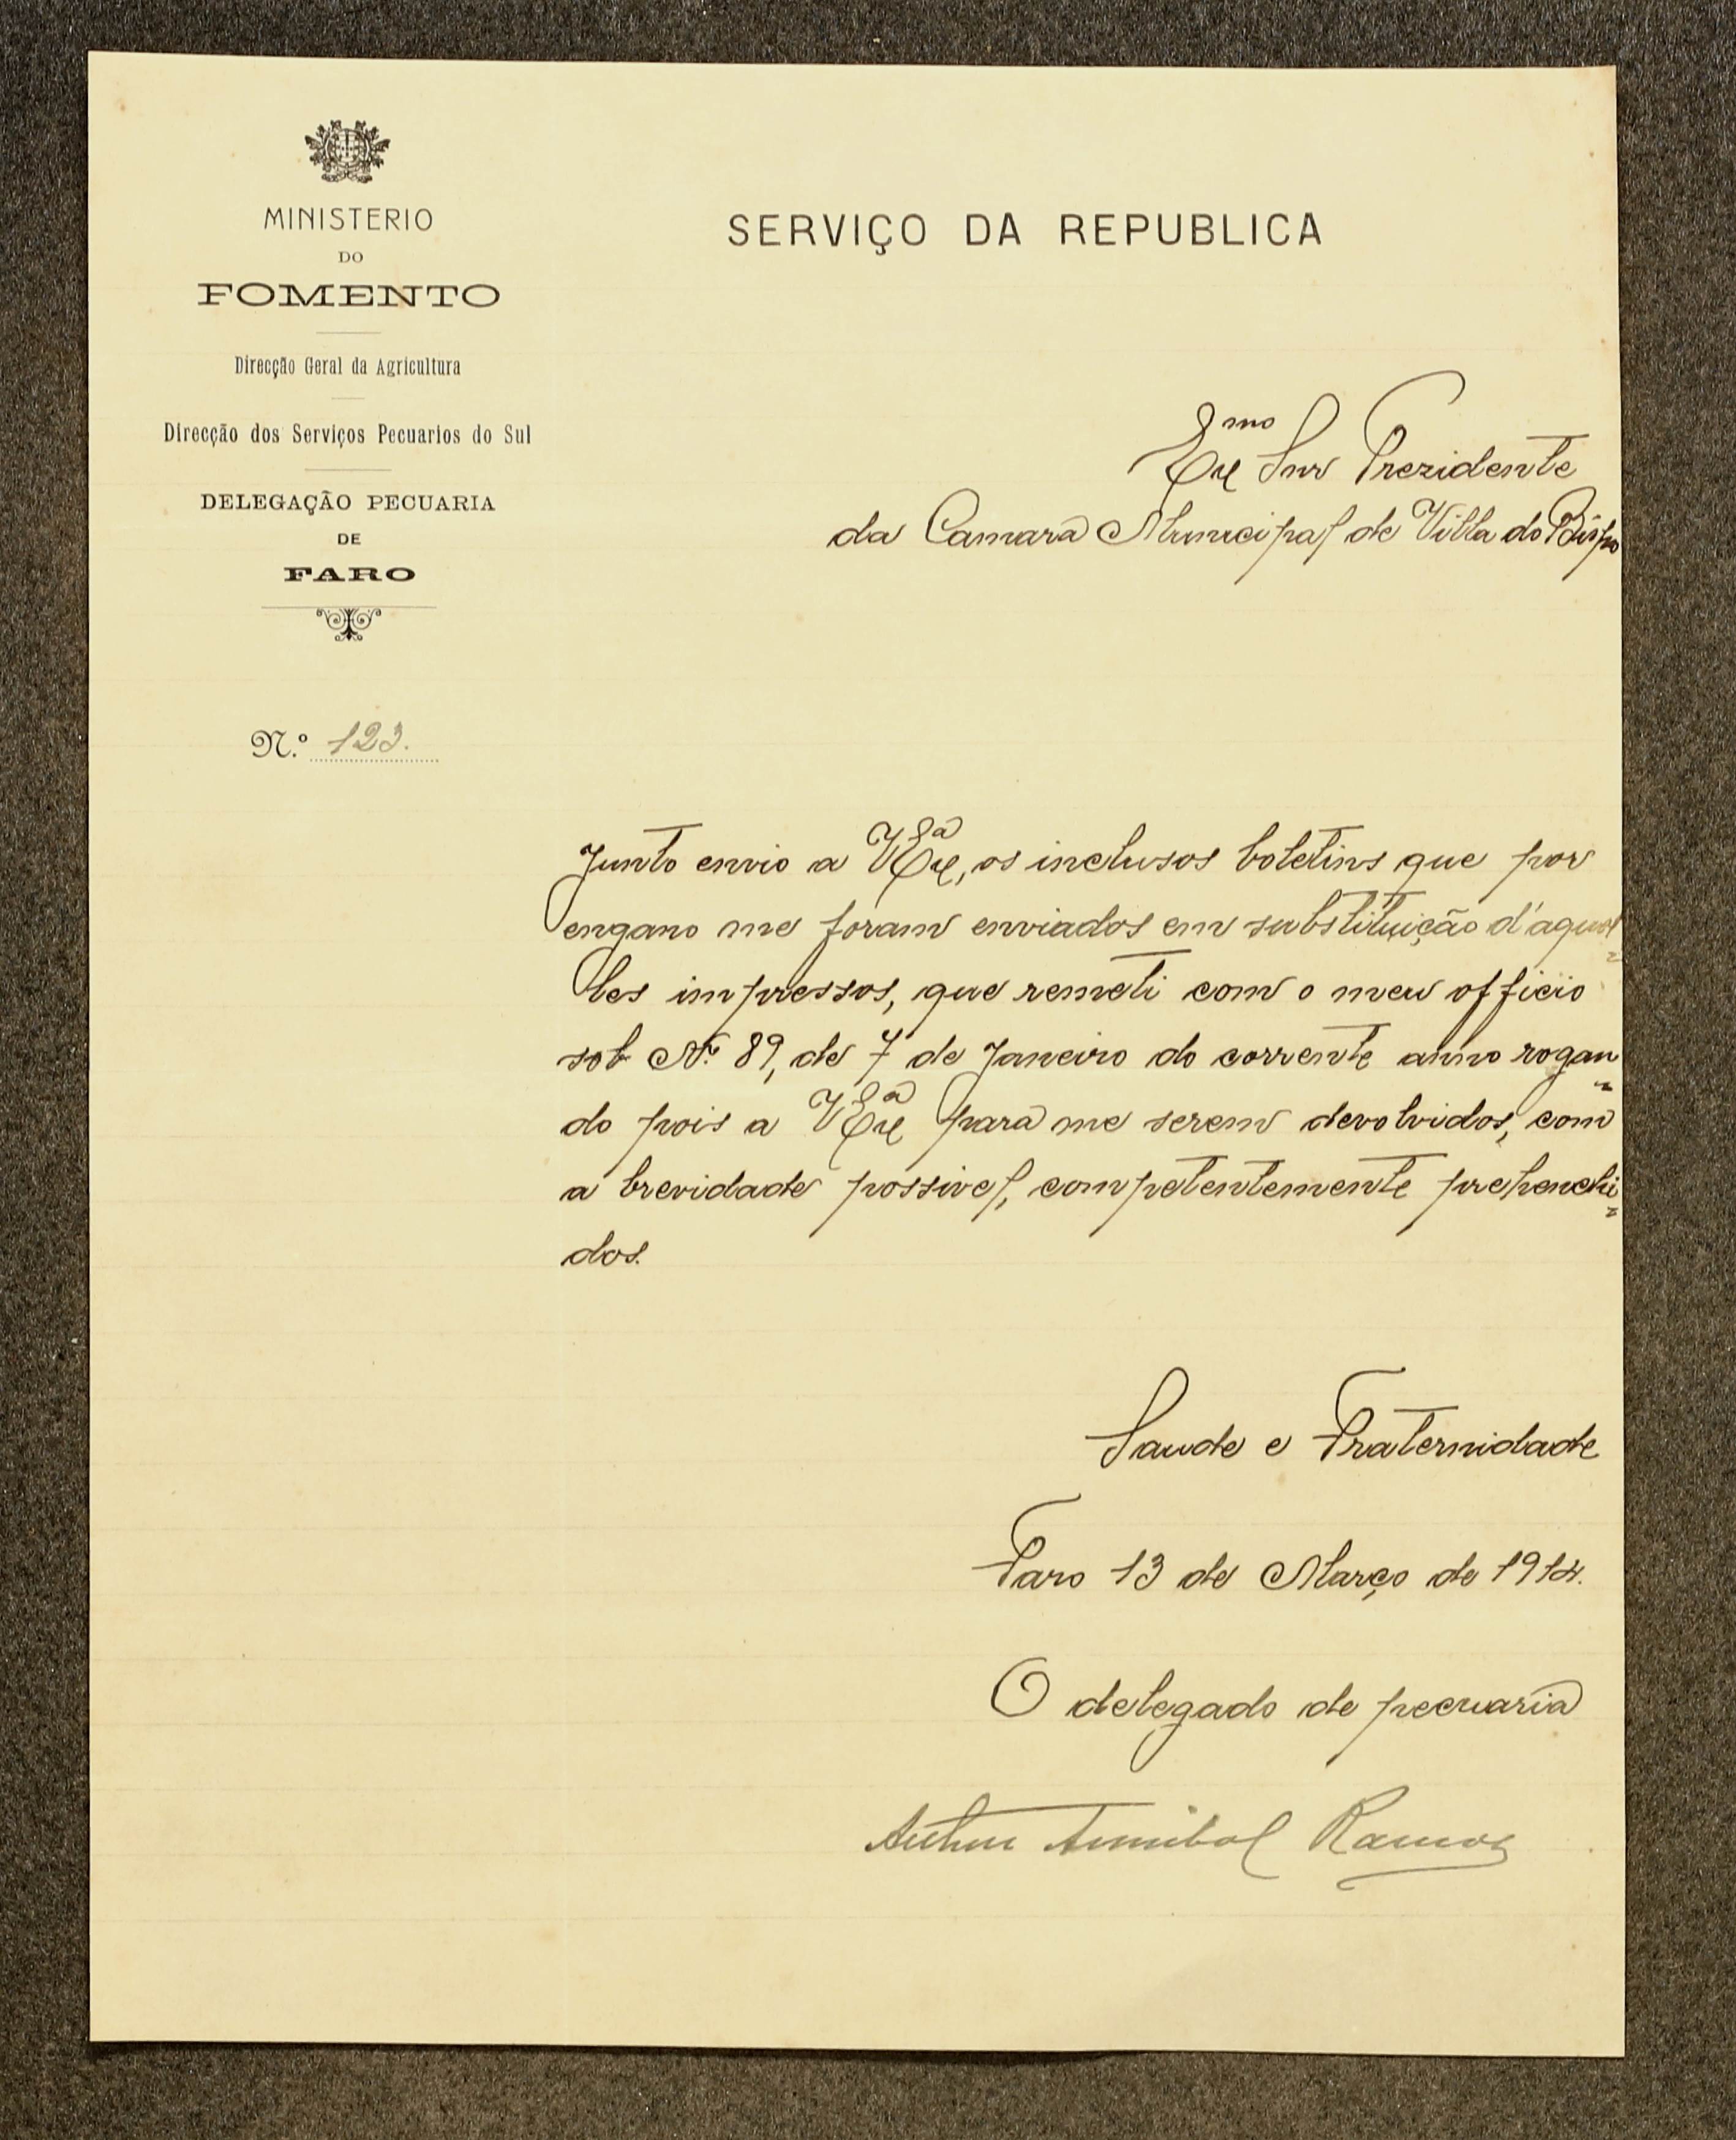 MINISTERIO
DO
FOMENTO
Direcção Geral da Agricultura
Direcção dos Serviços Pecuarios do Sul
DELEGAÇÃO PECUARIA
DE
FARO
N.º 123.
SERVIÇO DA REPUBLICA
Exmo Snr Prezidente
da Camara Municipal de Villa do Bispo
Junto envio a VExª, os inclusos boletins que por
engano me foram enviados em substituição d'aquel=
les impressos, que remeti com o meu officio
sob Nº 89, de 7 de Janeiro do corrente anno rogan=
do pois a VExª para me serem devolvidos, com
a brevidade possivel, competentemente prehenchi=
dos.
Saude e Fraternidade
Faro 13 de Março de 1914.
O delegado de pecuaria
Arthur Annibal Ramos